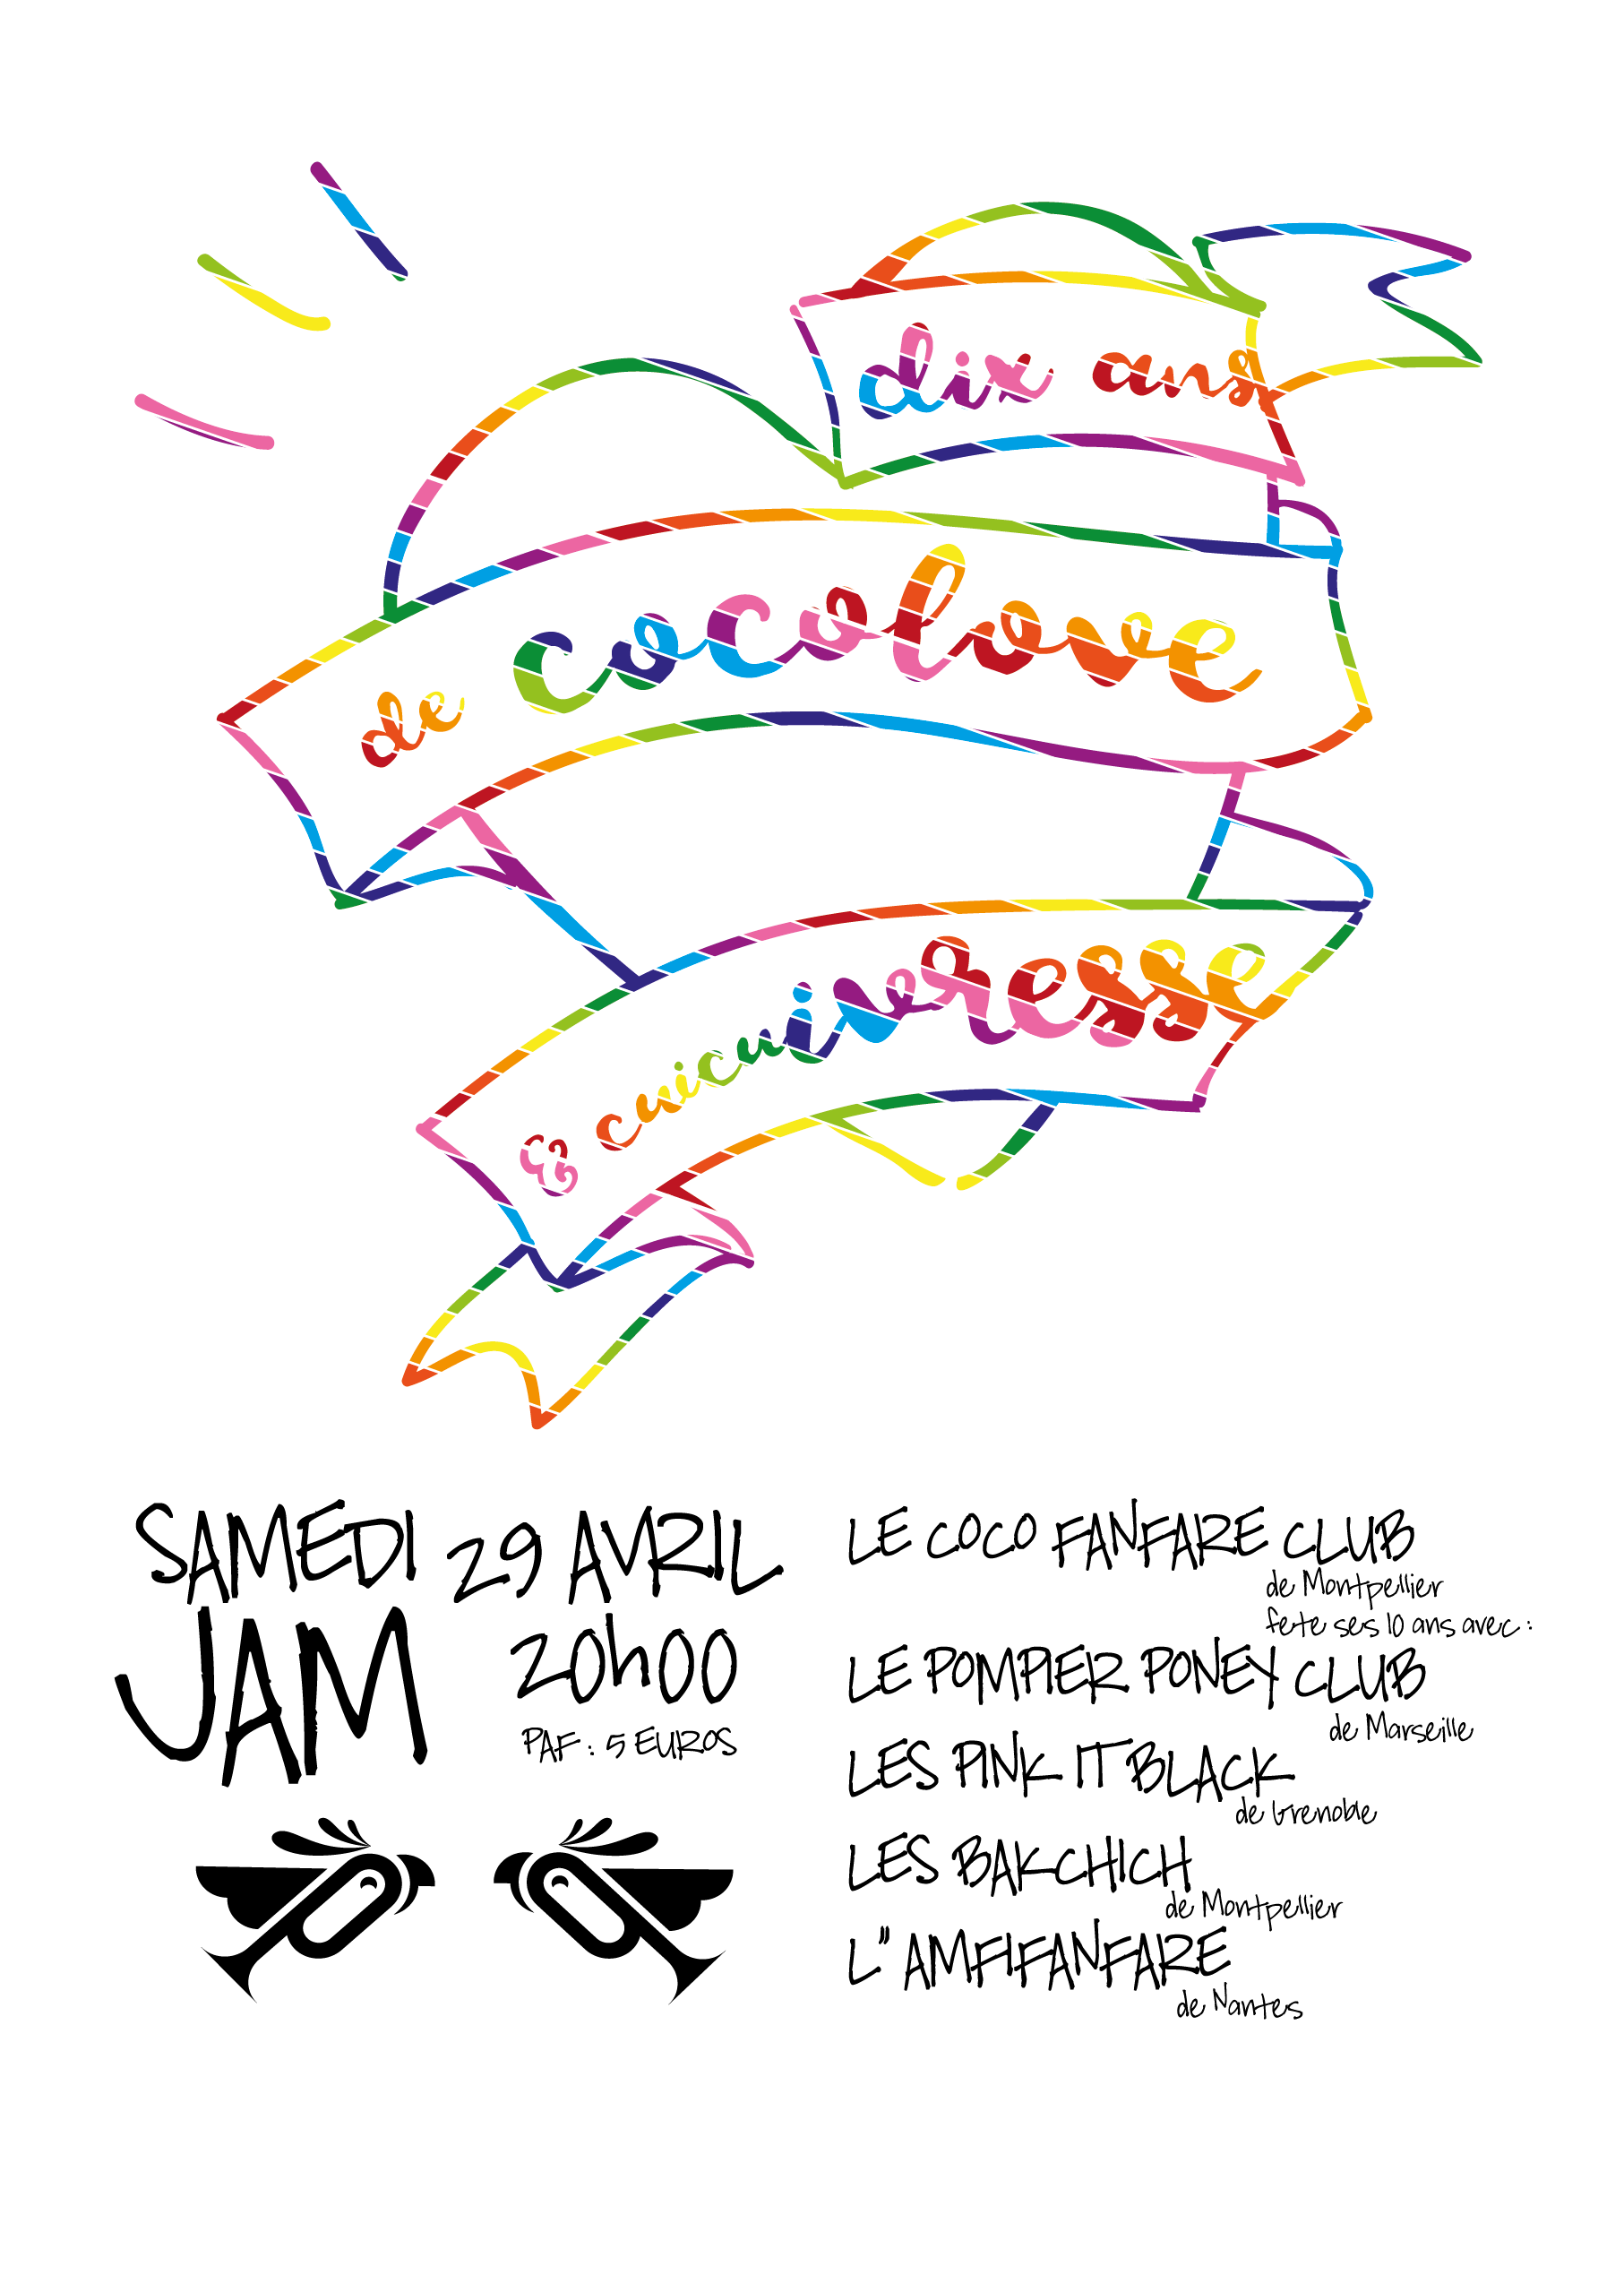 dix ans
de cocolove
& cuicuivresse
SAMEDI 29 AVRIL
JAM 20h00
PAF : 5 EUROS
LE COCO FANFARE CLUB
de Montpellier
fete ses 10 ans avec :
LE POMPIER PONEY CLUB
de Marseille
LES PINK IT BLACK
de Grenoble
LES BAKCHICH
de Montpellier
L'' AMFIFANFARE
de Nantes